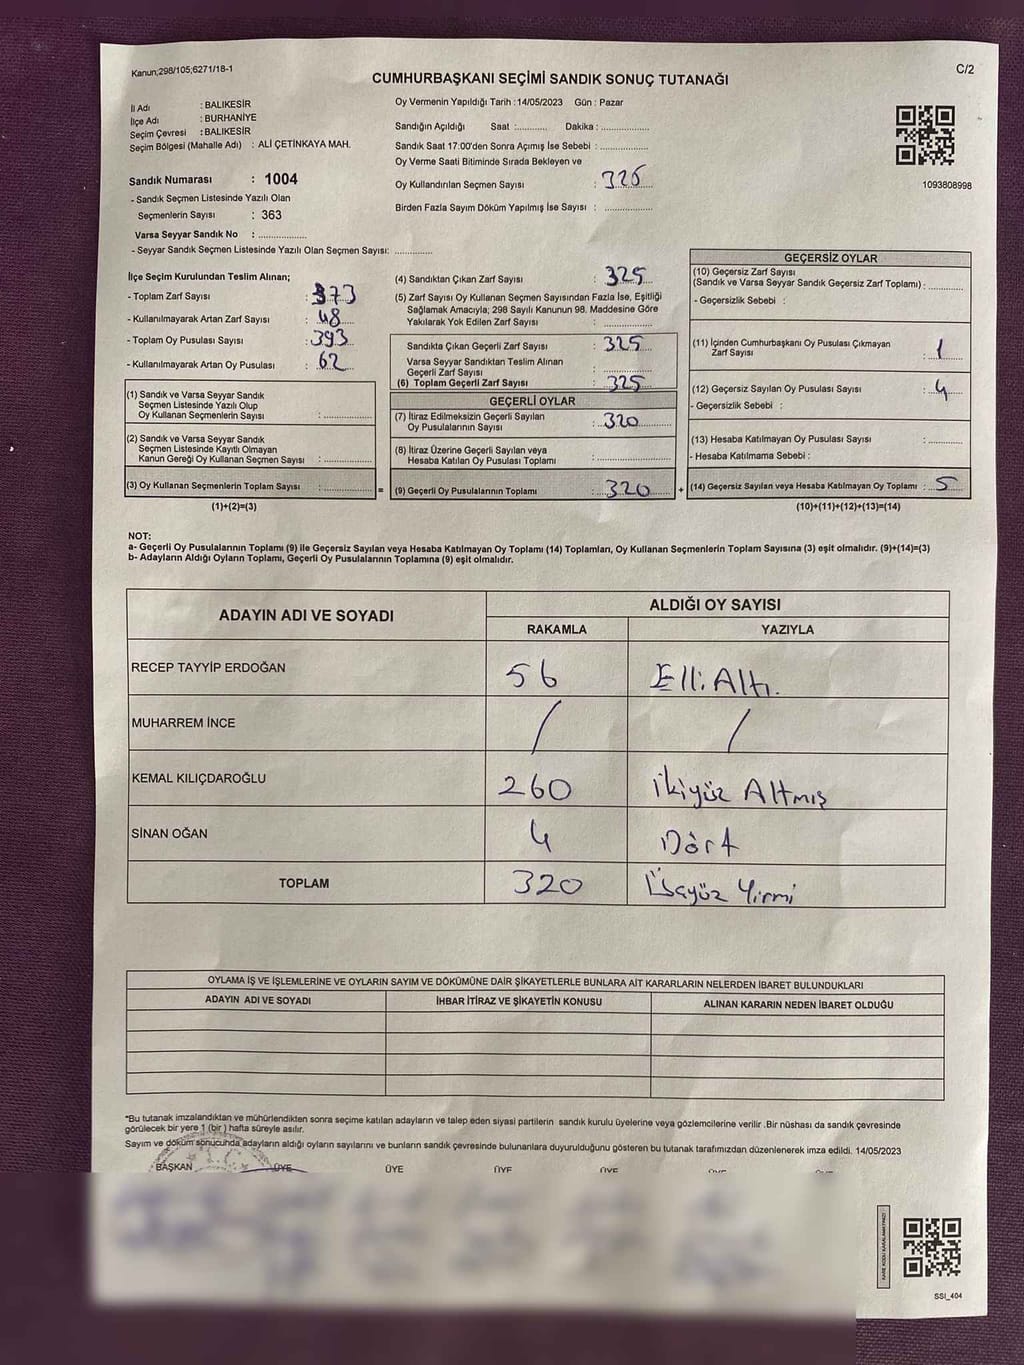 Kanun;298/105;6271/18-1
C/2
CUMHURBAŞKANI SEÇİMİ SANDIK SONUÇ TUTANAĞI
İl Adı : BALIKESİR
İlçe Adı : BURHANİYE
Seçim Çevresi : BALIKESİR
Seçim Bölgesi (Mahalle Adı) : ALİ ÇETİNKAYA MAH.
Sandık Numarası : 1004
- Sandık Seçmen Listesinde Yazılı Olan
Seçmenlerin Sayısı : 363
Varsa Seyyar Sandık No : ..............
- Seyyar Sandık Seçmen Listesinde Yazılı Olan Seçmen Sayısı: ............
Oy Vermenin Yapıldığı Tarih : 14/05/2023 Gün : Pazar
Sandığın Açıldığı Saat :........... Dakika : ................
Sandık Saat 17:00'den Sonra Açımış İse Sebebi : ................
Oy Verme Saati Bitiminde Sırada Bekleyen ve
Oy Kullandırılan Seçmen Sayısı : 326
Birden Fazla Sayım Döküm Yapılmış İse Sayısı : ................
1093808998
İlçe Seçim Kurulundan Teslim Alınan;
- Toplam Zarf Sayısı : 373
- Kullanılmayarak Artan Zarf Sayısı : 48
- Toplam Oy Pusulası Sayısı : 393
- Kullanılmayarak Artan Oy Pusulası : 62
(1) Sandık ve Varsa Seyyar Sandık
Seçmen Listesinde Yazılı Olup
Oy Kullanan Seçmenlerin Sayısı : ................
(2) Sandık ve Varsa Seyyar Sandık
Seçmen Listesinde Kayıtlı Olmayan
Kanun Gereği Oy Kullanan Seçmen Sayısı : ................
(3) Oy Kullanan Seçmenlerin Toplam Sayısı : ................
(1)+(2)=(3)
=
(4) Sandıktan Çıkan Zarf Sayısı : 325
(5) Zarf Sayısı Oy Kullanan Seçmen Sayısından Fazla İse, Eşitliği
Sağlamak Amacıyla; 298 Sayılı Kanunun 98. Maddesine Göre
Yakılarak Yok Edilen Zarf Sayısı : ................
Sandıkta Çıkan Geçerli Zarf Sayısı : 325
Varsa Seyyar Sandıktan Teslim Alınan
Geçerli Zarf Sayısı : ................
(6) Toplam Geçerli Zarf Sayısı : 325
GEÇERLİ OYLAR
(7) İtiraz Edilmeksizin Geçerli Sayılan
Oy Pusulalarının Sayısı : 320
(8) İtiraz Üzerine Geçerli Sayılan veya
Hesaba Katılan Oy Pusulası Toplamı : ................
(9) Geçerli Oy Pusulalarının Toplamı : 320
+
GEÇERSİZ OYLAR
(10) Geçersiz Zarf Sayısı
(Sandık ve Varsa Seyyar Sandık Geçersiz Zarf Toplamı) : ............
- Geçersizlik Sebebi :
(11) İçinden Cumhurbaşkanı Oy Pusulası Çıkmayan
Zarf Sayısı : 1
(12) Geçersiz Sayılan Oy Pusulası Sayısı : 4
- Geçersizlik Sebebi :
(13) Hesaba Katılmayan Oy Pusulası Sayısı : ............
- Hesaba Katılmama Sebebi :
(14) Geçersiz Sayılan veya Hesaba Katılmayan Oy Toplamı : 5
(10)+(11)+(12)+(13)=(14)
NOT:
a- Geçerli Oy Pusulalarının Toplamı (9) ile Geçersiz Sayılan veya Hesaba Katılmayan Oy Toplamı (14) Toplamları, Oy Kullanan Seçmenlerin Toplam Sayısına (3) eşit olmalıdır. (9)+(14)=(3)
b- Adayların Aldığı Oyların Toplamı, Geçerli Oy Pusulalarının Toplamına (9) eşit olmalıdır.
ADAYIN ADI VE SOYADI
ALDIĞI OY SAYISI
RAKAMLA YAZIYLA
RECEP TAYYİP ERDOĞAN 56 Elli Altı.
MUHARREM İNCE / /
KEMAL KILIÇDAROĞLU 260 İkiyüz Altmış
SİNAN OĞAN 4 Dört
TOPLAM 320 Üçyüz Yirmi
OYLAMA İŞ VE İŞLEMLERİNE VE OYLARIN SAYIM VE DÖKÜMÜNE DAİR ŞİKAYETLERLE BUNLARA AİT KARARLARIN NELERDEN İBARET BULUNDUKLARI
ADAYIN ADI VE SOYADI İHBAR İTİRAZ VE ŞİKAYETİN KONUSU ALINAN KARARIN NEDEN İBARET OLDUĞU
*Bu tutanak imzalandıktan ve mühürlendikten sonra seçime katılan adayların ve talep eden siyasi partilerin sandık kurulu üyelerine veya gözlemcilerine verilir .Bir nüshası da sandık çevresinde
görülecek bir yere 1 (bir) hafta süreyle asılır.
Sayım ve döküm sonucunda adayların aldığı oyların sayılarını ve bunların sandık çevresinde bulunanlara duyurulduğunu gösteren bu tutanak tarafımızdan düzenlenerek imza edildi. 14/05/2023
T.C.
BAŞKAN ÜYE ÜYE ÜYE ÜYE ÜYE ÜYE
KARE KODU KARALAMAYINIZ!
SSI_404